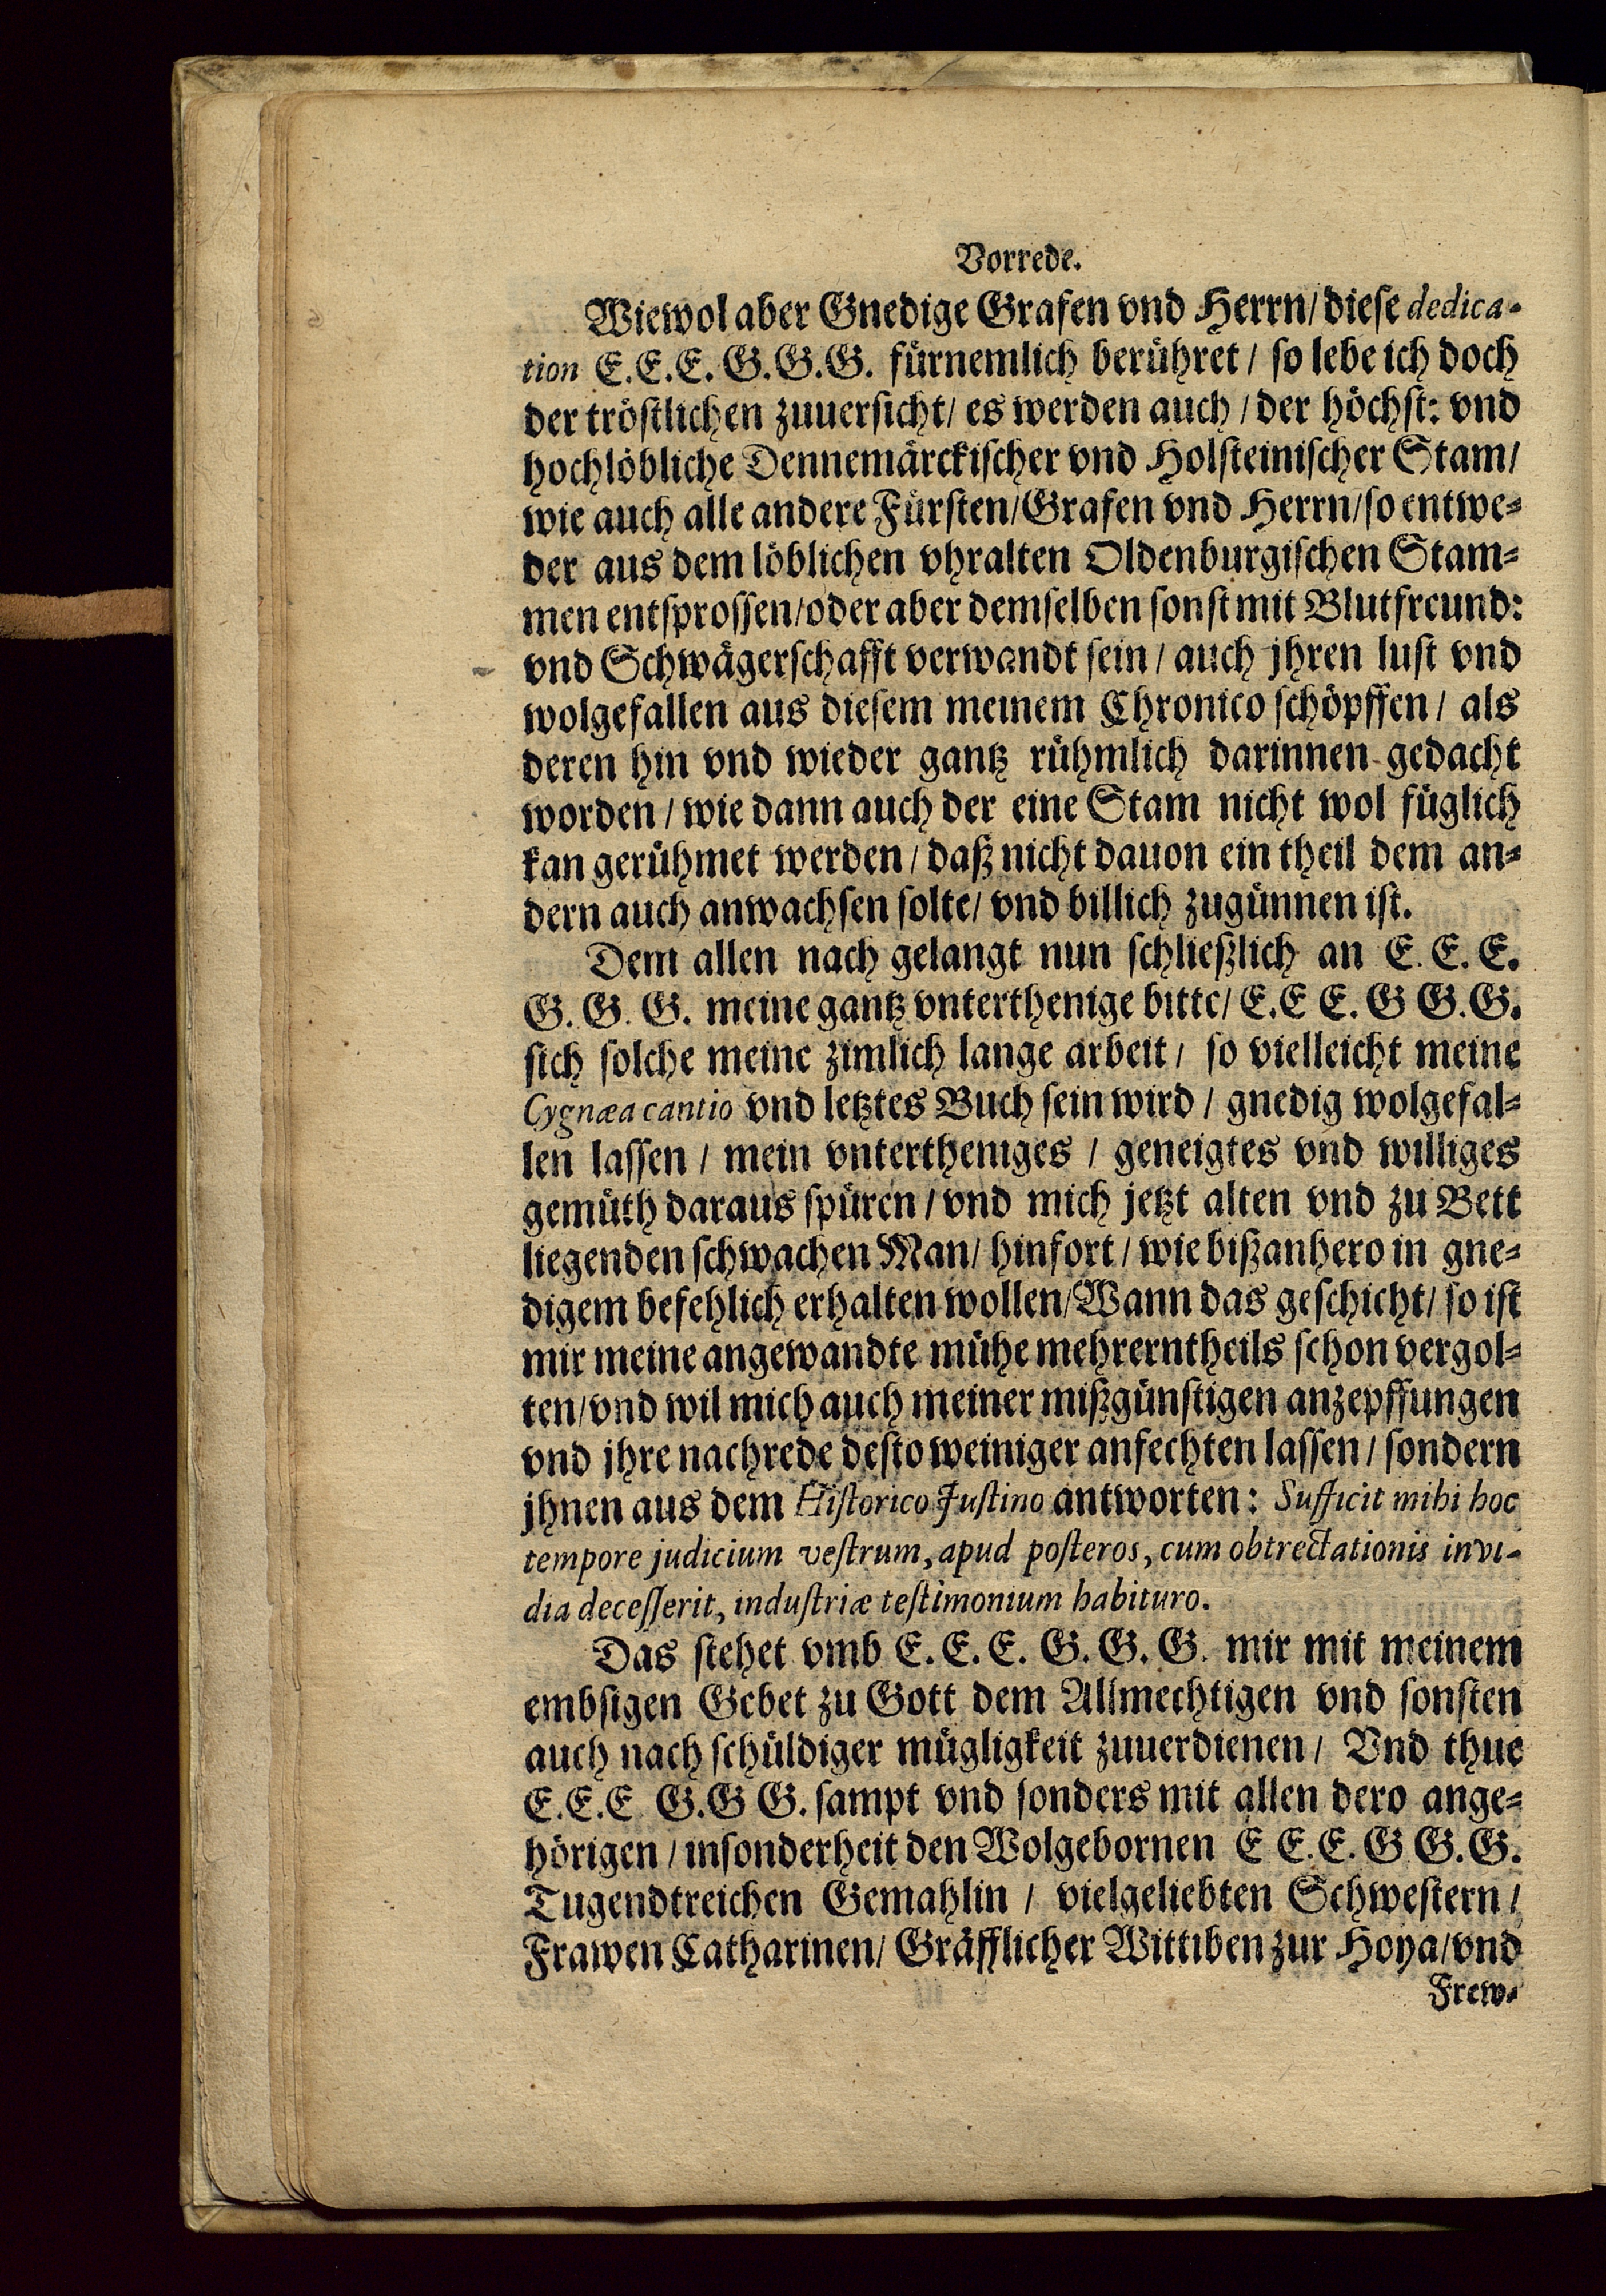 Vorrede.
Wiewol aber Gnedige Grafen vnd Herrn/ diese dedica-
tion E.E.E. G.G.G. fürnemlich berühret / so lebe ich doch
der tröstlichen zuuersicht/ es werden auch / der höchst: vnd
hochlöbliche Dennemärckischer vnd Holsteinischer Stam/
wie auch alle andere Fürsten/Grafen vnd Herrn/so entwe=
der aus dem löblichen vhralten Oldenburgischen Stam=
men entsprossen/oder aber demselben sonst mit Blutfreund:
vnd Schwägerschafft verwandt sein / auch jhren lust vnd
wolgefallen aus diesem meinem Chronico schöpffen / als
deren hin vnd wieder gantz rühmlich darinnen gedacht
worden / wie dann auch der eine Stam nicht wol füglich
kan gerühmet werden / daß nicht dauon ein theil dem an=
dern auch anwachsen solte/ vnd billich zugünnen ist.
Dem allen nach gelangt nun schließlich an E. E. E.
G. G. G. meine gantz vnterthenige bitte/ E.E E. G G.G.
sich solche meine zimlich lange arbeit / so vielleicht meine
Cygnæa cantio vnd letztes Buch sein wird / gnedig wolgefal=
len lassen / mein vntertheniges / geneigtes vnd williges
gemüth daraus spüren / vnd mich jetzt alten vnd zu Bett
liegenden schwachen Man/ hinfort / wie bißanhero in gne=
digem befehlich erhalten wollen/Wann das geschicht/ so ist
mir meine angewandte mühe mehrerntheils schon vergol=
ten/vnd wil mich auch meiner mißgünstigen anzepffungen
vnd jhre nachrede desto weiniger anfechten lassen / sondern
jhnen aus dem Historico Justino antworten: Sufficit mihi hoc
tempore judicium vestrum, apud posteros, cum obtrectationis invi-
dia decesserit, industriæ testimonium habituro.
Das stehet vmb E. E. E. G. G. G. mir mit meinem
embsigen Gebet zu Gott dem Allmechtigen vnd sonsten
auch nach schüldiger mügligkeit zuuerdienen / Vnd thue
E.E.E G.G G. sampt vnd sonders mit allen dero ange=
hörigen / insonderheit den Wolgebornen E E.E. G G.G.
Tugendtreichen Gemahlin / vielgeliebten Schwestern /
Frawen Catharinen/ Gräfflicher Wittiben zur Hoya/vnd
Frew-